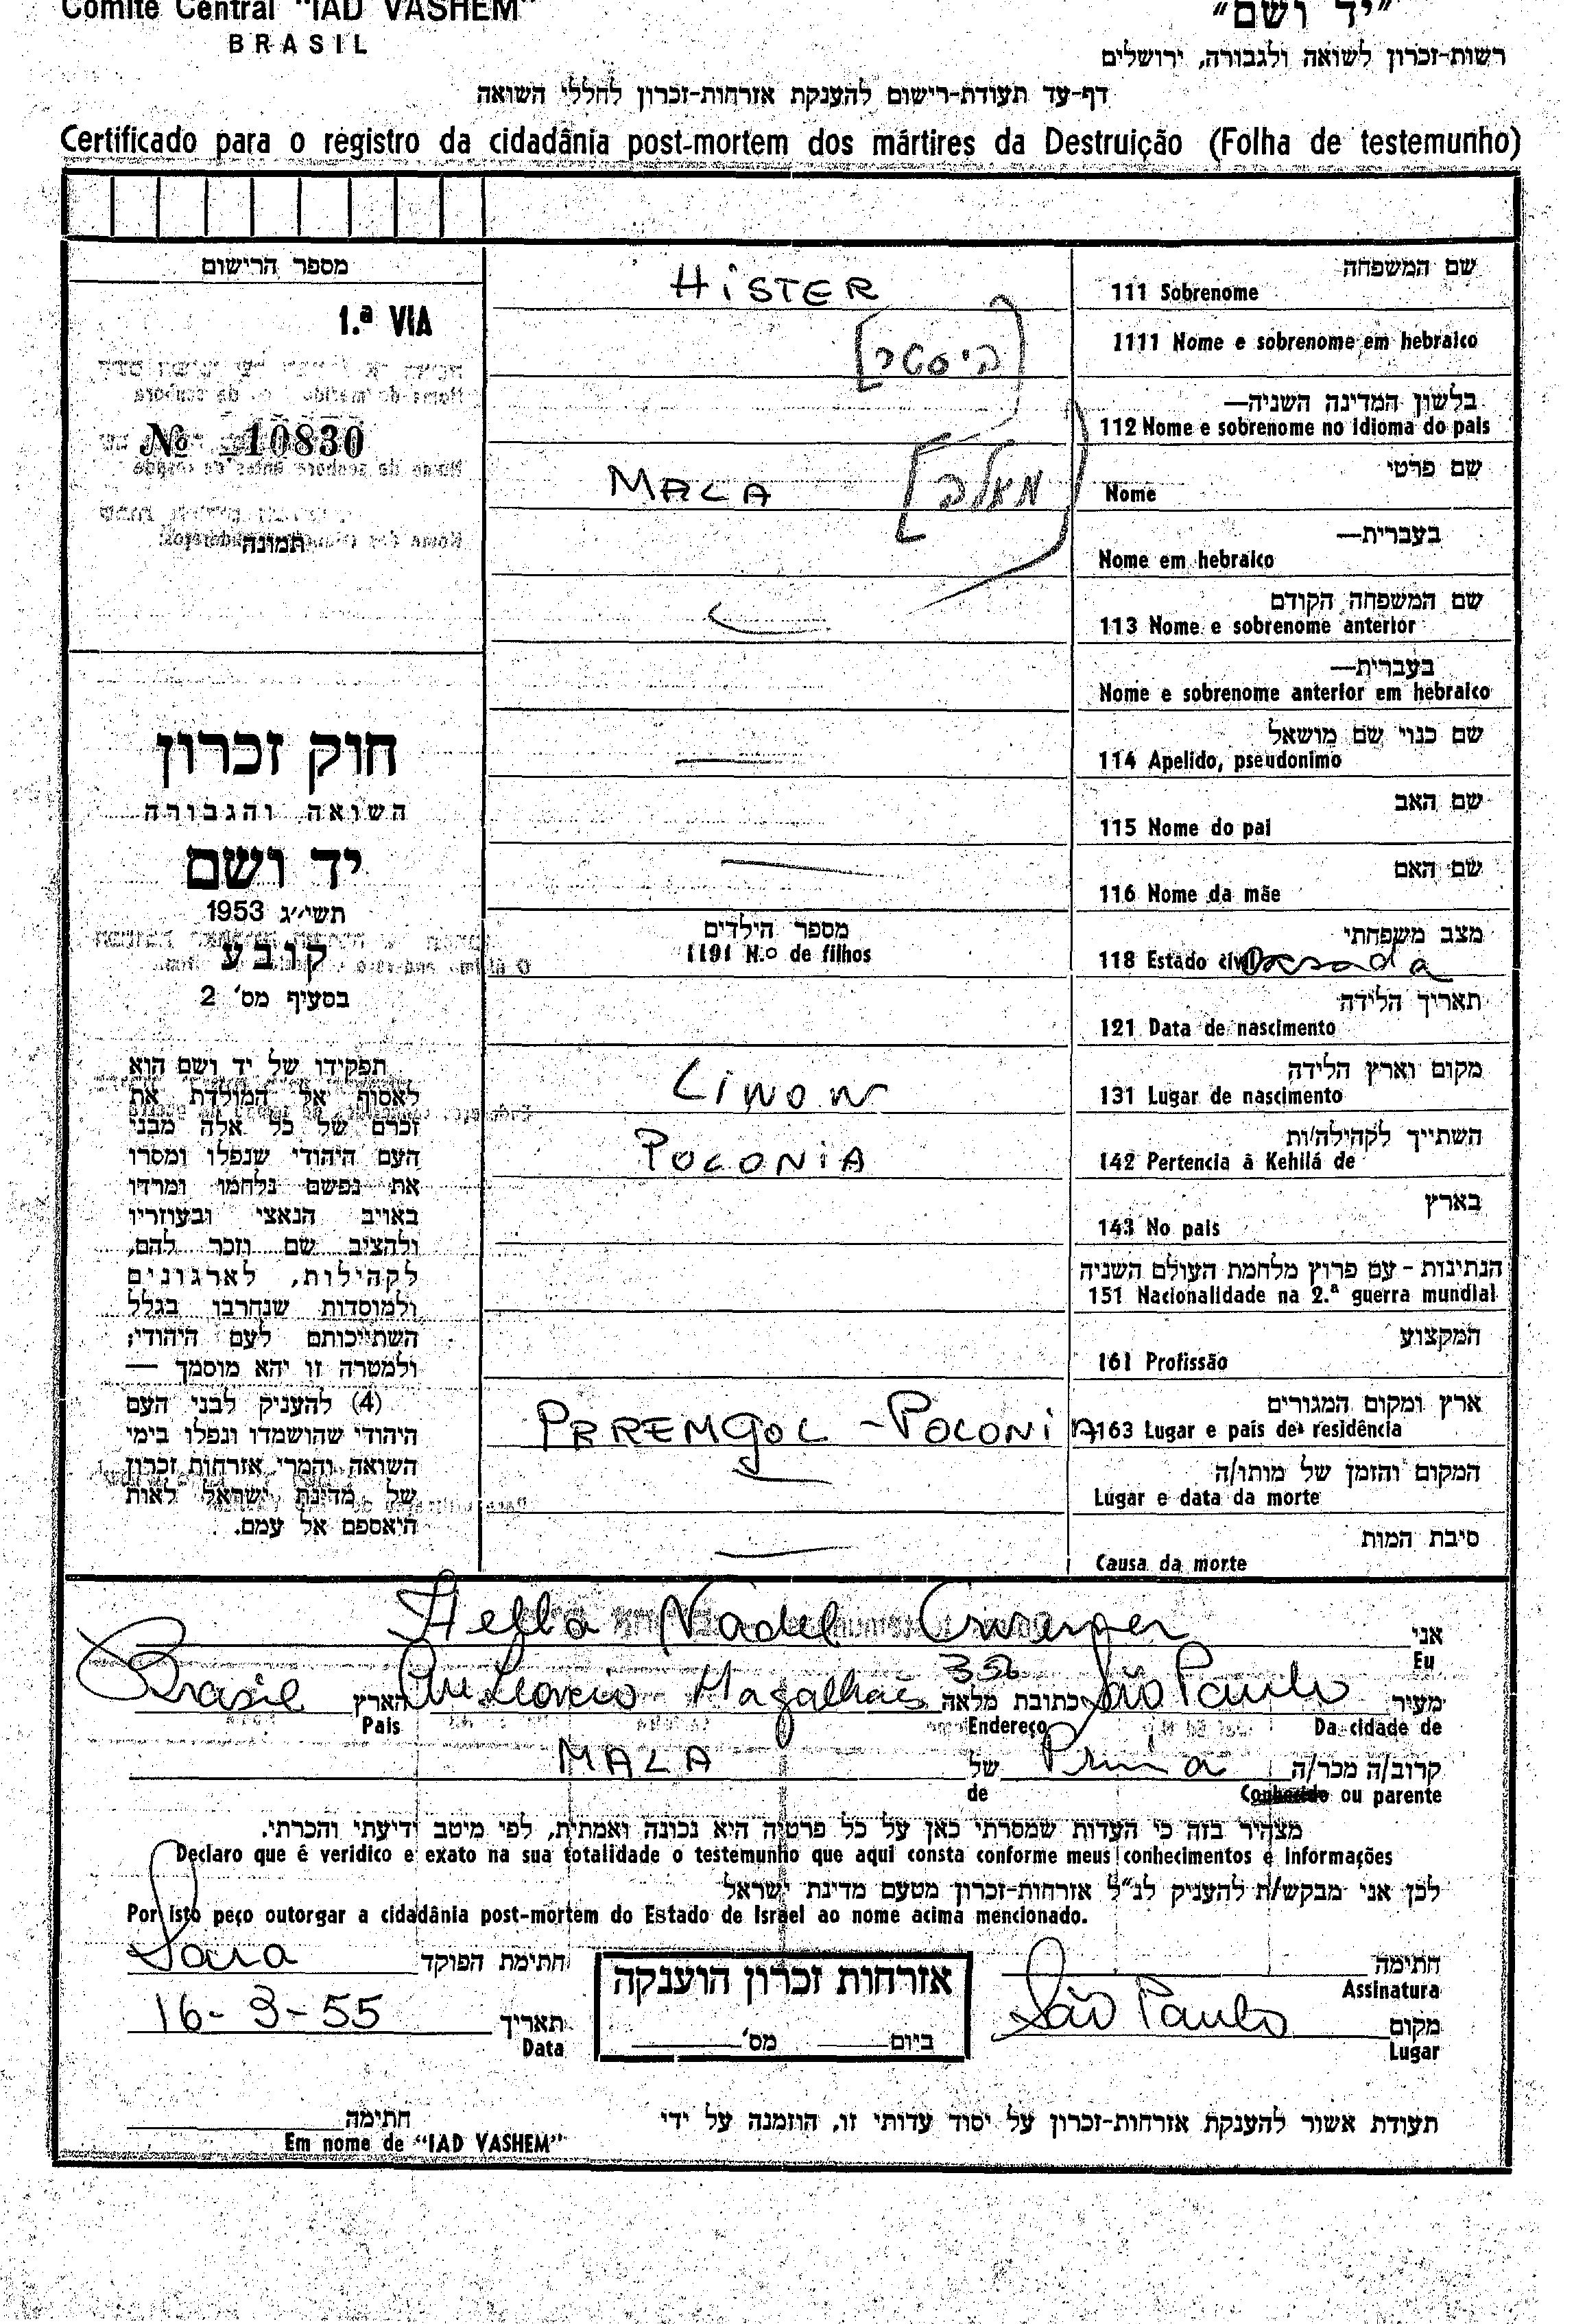 Comité Central "IAD VASHEM"
BRASIL
"יד ושם"
רשות-זכרון לשואה ולגבורה, ירושלים
דף-עד תעודת-רישום להענקת אזרחות-זכרון לחללי השואה
Certificado para o registro da cidadânia post-mortem dos mártires da Destruição (Folha de testemunho)
מספר הרישום
1.ª VIA
№ 10830
תמונה
חוק זכרון
השואה והגבורה
יד ושם
תשי״ג 1953
קובע
בסעיף מס' 2
תפקידו של יד ושם הוא
לאסוף אל המולדת את
זכרם של כל אלה מבני
העם היהודי שנפלו ומסרו
את נפשם נלחמו ומרדו
באויב הנאצי ובעוזריו
ולהציב שם וזכר להם,
לקהילות, לארגונים
ולמוסדות שנחרבו בגלל
השתייכותם לעם היהודי;
ולמטרה זו יהא מוסמך —
(4) להעניק לבני העם
היהודי שהושמדו ונפלו בימי
השואה והמרי אזרחות זכרון
של מדינת ישראל לאות
היאספם אל עמם.
שם המשפחה
111 Sobrenome HISTER
1111 Nome e sobrenome em hebraico [היסטר]
בלשון המדינה השניה—
112 Nome e sobrenome no idioma do pais
שם פרטי
Nome MALA [מאלה]
בעברית—
Nome em hebraico
שם המשפחה הקודם
113 Nome e sobrenome anterior
בעברית—
Nome e sobrenome anterior em hebraico
שם כנוי שם מושאל
114 Apelido, pseudonimo —
שם האב
115 Nome do pai
שם האם
116 Nome da mãe —
מצב משפחתי
118 Estado civil Casada
מספר הילדים
1191 N.o de filhos
תאריך הלידה
121 Data de nascimento
מקום וארץ הלידה
131 Lugar de nascimento LiWOW
השתייך לקהילה/ות
142 Pertencia à Kehilá de POLONIA
בארץ
143 No pais
הנתינות - עם פרוץ מלחמת העולם השניה
151 Nacionalidade na 2.ª guerra mundial
המקצוע
161 Profissão
ארץ ומקום המגורים
163 Lugar e pais de residência PRREMGOL - POLONIA
המקום והזמן של מותו/ה
Lugar e data da morte —
סיבת המות
Causa da morte —
אני
Eu Hella Nadel
מעיר São Paulo כתובת מלאה 352 Magalhaes הארץ Brasil
Da cidade de Endereço Pais
קרוב/ה מכר/ה Prima של MALA
Conhecido ou parente de
מצהיר בזה כי העדות שמסרתי כאן על כל פרטיה היא נכונה ואמתית, לפי מיטב ידיעתי והכרתי.
Declaro que é veridico e exato na sua totalidade o testemunho que aqui consta conforme meus conhecimentos e informações
לכן אני מבקש/ת להעניק לנ"ל אזרחות-זכרון מטעם מדינת ישראל
Por isto peço outorgar a cidadânia post-mortem do Estado de Israel ao nome acima mencionado.
חתימה
Assinatura
חתימת הפוקד Sara
אזרחות זכרון הוענקה
ביום מס'
מקום São Paulo
Lugar
תאריך 16-3-55
Data
תעודת אשור להענקת אזרחות-זכרון על יסוד עדותי זו, הוזמנה על ידי
חתימה
Em nome de "IAD VASHEM"